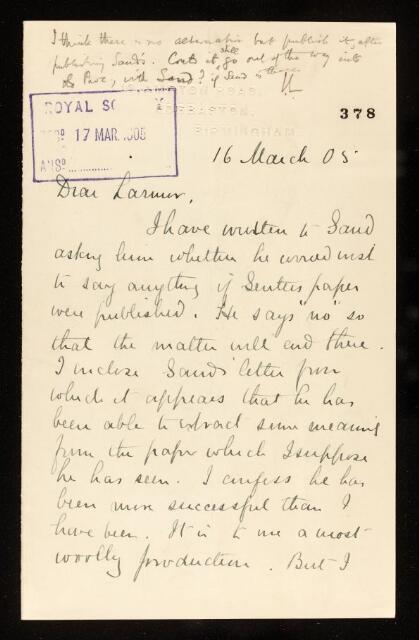 I think there is no alternative but publish it, after
publishing Sand's. Could it still go out of the way into
Proc, with Sand? if Sand is there
JL
378
ROYAL SOC
REC? 17 MAR. 1905
ANS?
EDGBASTON,
BIRMINGHAM.
16 March 05
Dear Larmor,
I have written to Sand
asking him whether he would wish
to say anything if Senter's paper
were published. He says "no" so
that the matter will end there.
I inclose Sand's letter from
which it appears that he has
been able to extract some meaning
from the paper which I suppose
he has seen. I confess he has
been more successful than I
have been. It is to me a most
woolly production. But I